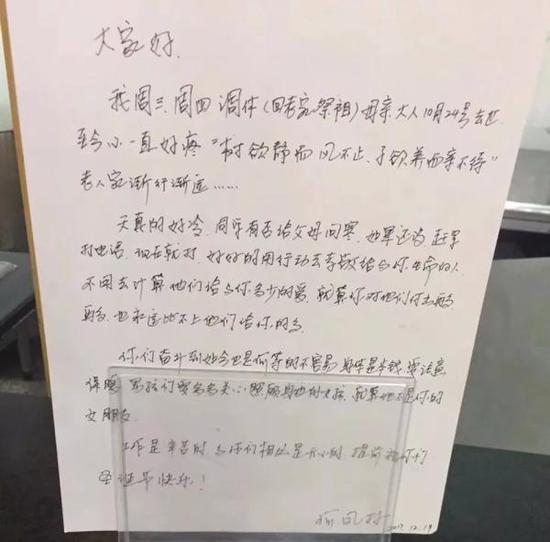 大家好.
我周三、周四调休(回老家祭祖)母亲大人10月24号去世
至今心一直好疼"树欲静而风不止,子欲养而亲不待"
老人家渐行渐远......
天真的好冷,同学有否给父母问寒,如果还没,赶早
打电话,现在就打,好好的用行动去孝敬给与你生命的人
不用去计算他们给与你多少的爱,就算你对他们付出再多
再多,也永远比不上他们给你的多
你们奋斗到如今也是何等的不容易,身体是本钱,要注意
保暖,男孩们要多多关心照顾身边的女孩,就算她不是你的
女朋友.
工作是辛苦的,与你们相处是开心的,提前祝你们
圣诞节快乐!
2017.12.19